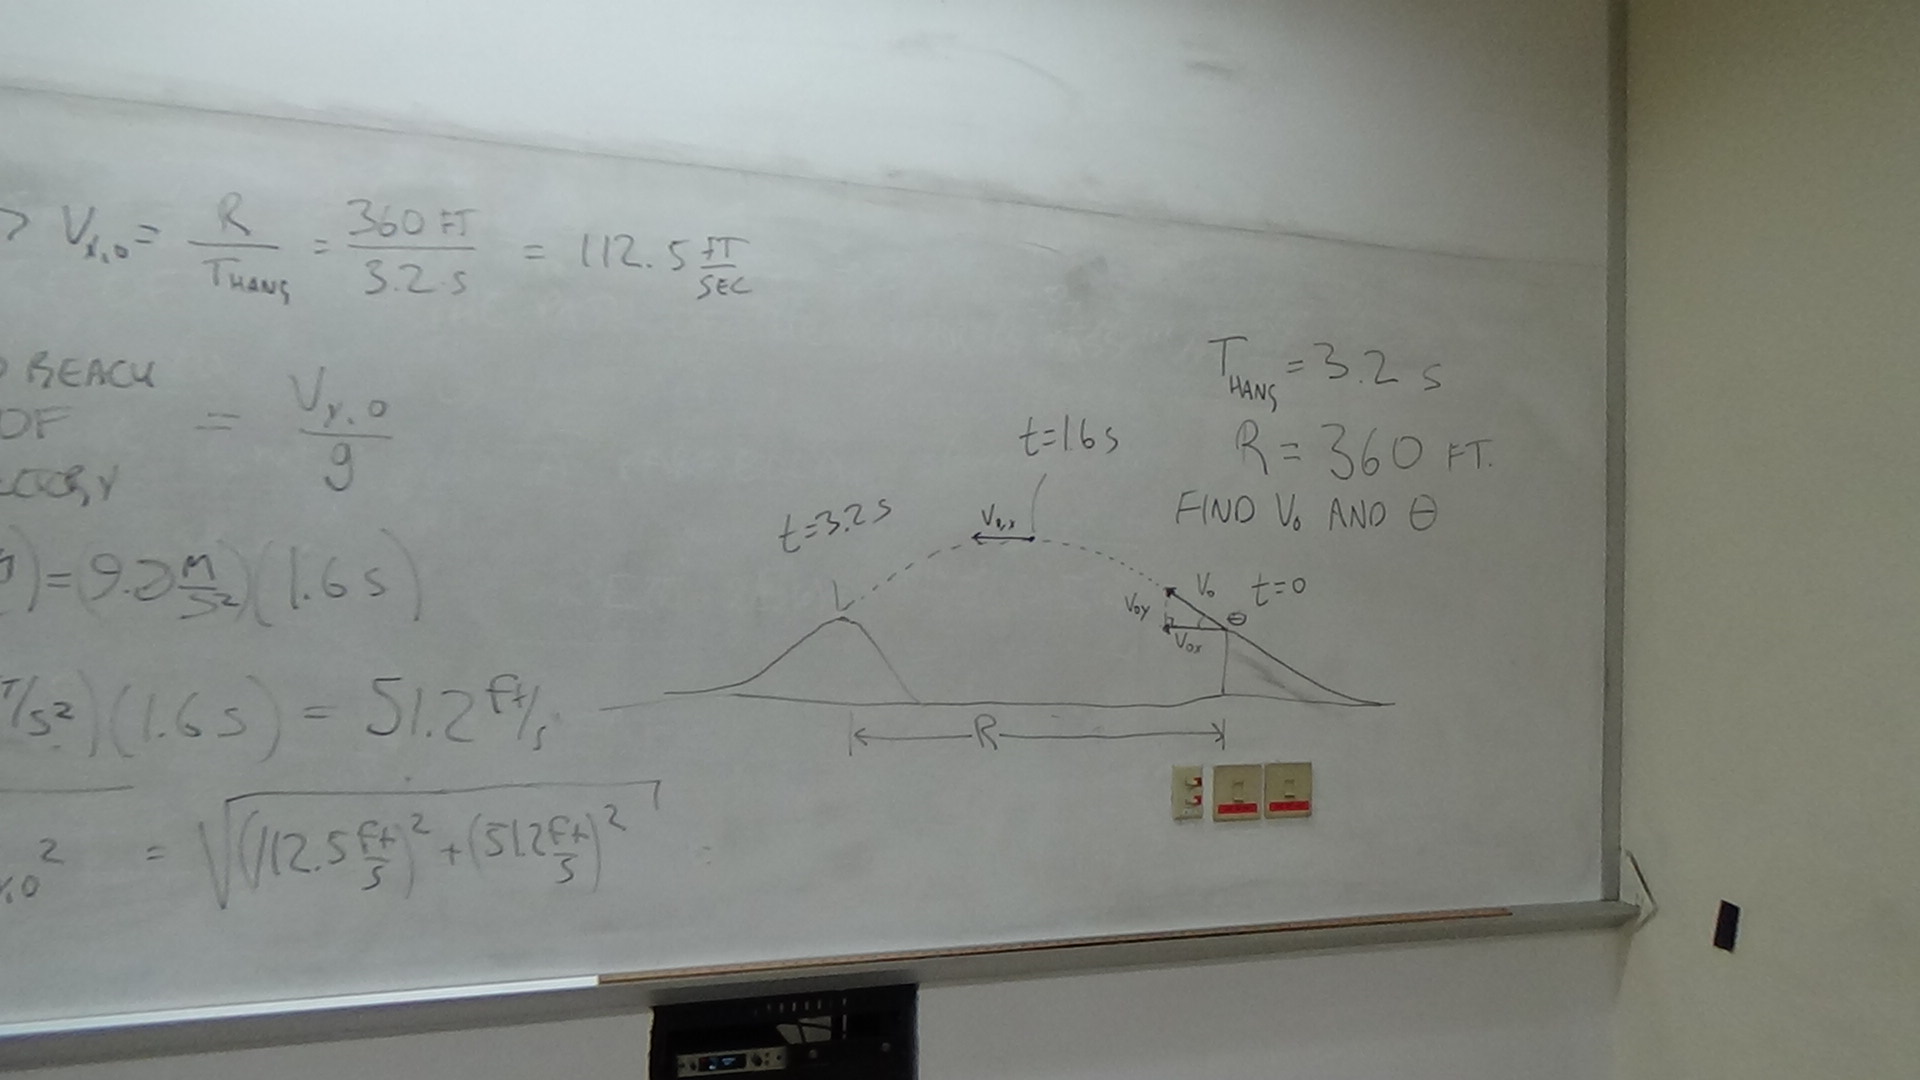 > Vx,0 = R / THANG = 360 FT / 3.2 s = 112.5 FT/SEC
REACH
OF = Vy,0 / g
) = (9.8 M/S²)(1.6 s)
T/s²)(1.6 s) = 51.2 ft/s
² = √((112.5 ft/s)² + (51.2 ft/s)²)
THANG = 3.2 s
R = 360 FT.
FIND V₀ AND θ
t=1.6 s
t=3.2 s
V₀,x
V₀
t=0
θ
V₀y
V₀x
R